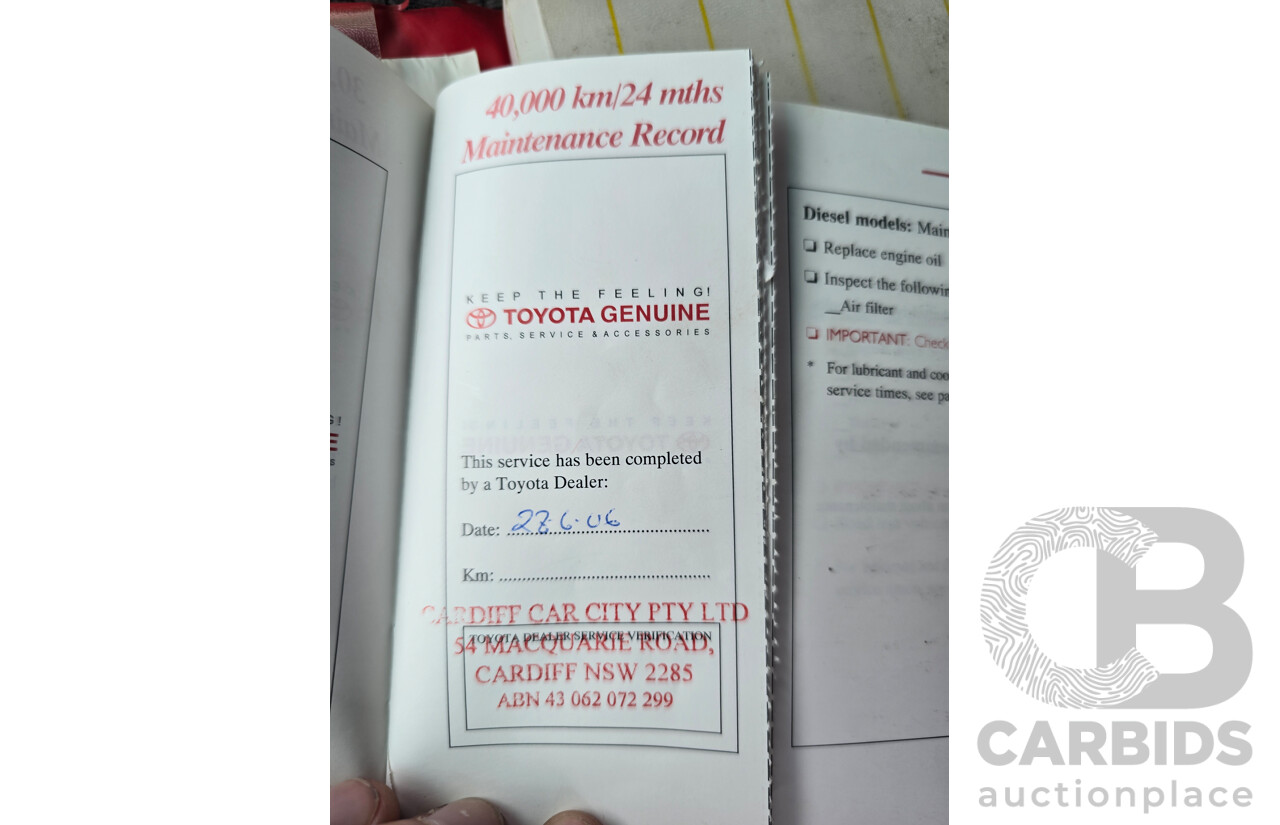 40,000 km/24 mths
Maintenance Record
KEEP THE FEELING!
TOYOTA GENUINE
PARTS, SERVICE & ACCESSORIES
This service has been completed
by a Toyota Dealer:
Date: 27.6.06
Km:
CARDIFF CAR CITY PTY LTD
TOYOTA DEALER SERVICE VERIFICATION
54 MACQUARIE ROAD,
CARDIFF NSW 2285
ABN 43 062 072 299
Diesel models: Main
Replace engine oil
Inspect the followin
Air filter
IMPORTANT: Check
* For lubricant and coo
service times, see pa
CB
CARBIDS
auctionplace